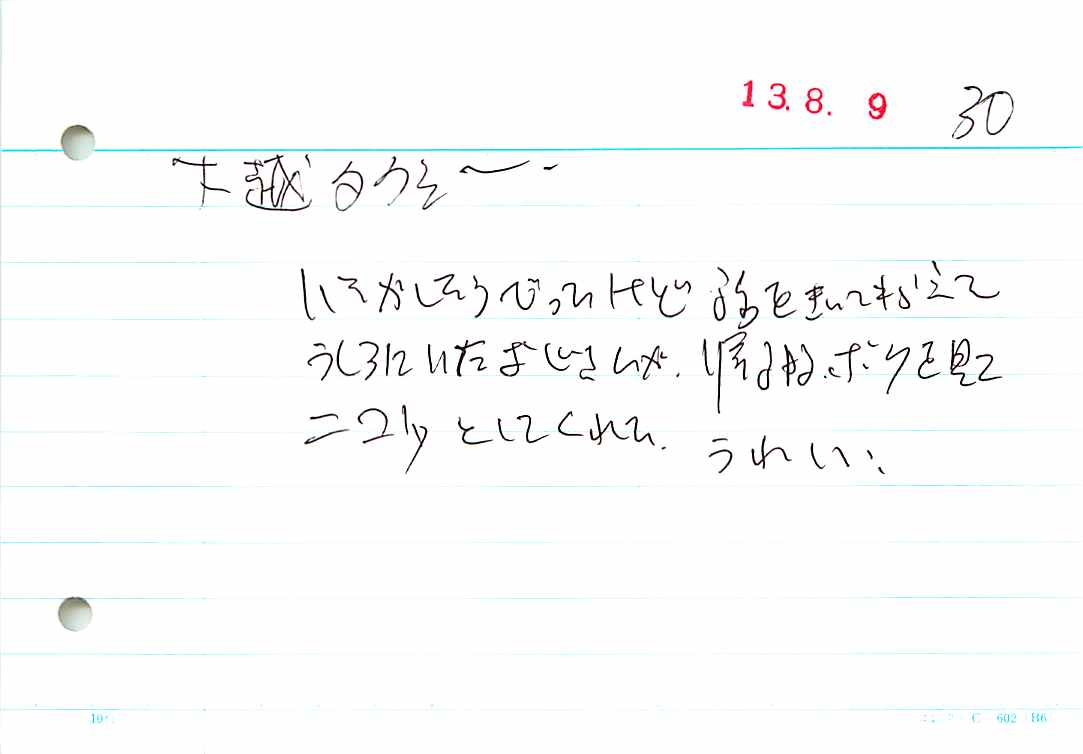 13. 8. 9 30
下越
いそがしそうだったけど 話をきいてもらえて
うしろにいたおじさんが、帰る時、ボクを見て
ニコッとしてくれた。 うれしい
602 B6